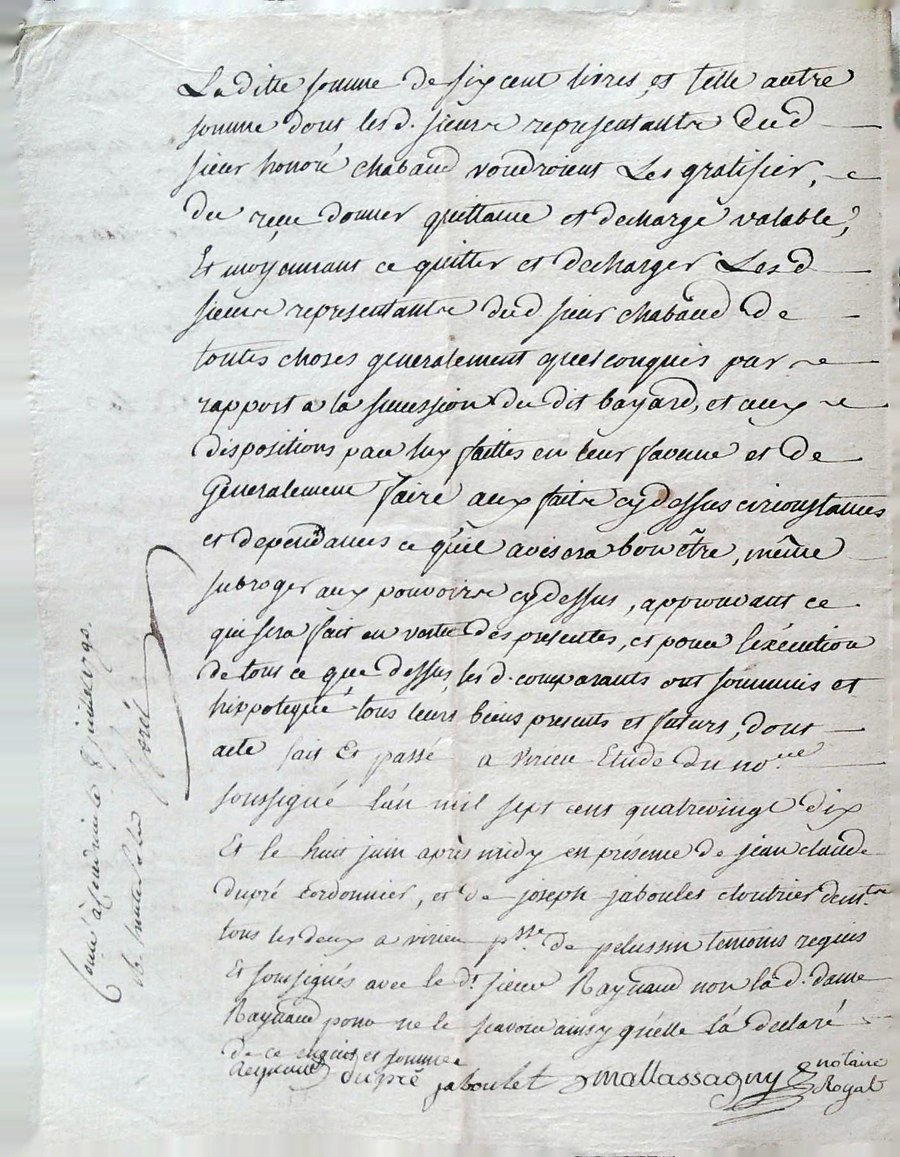 La ditte somme de six cent livres, et telle autre
somme dont les d. sieurs representants dud
sieur honoré chabaud voudroient Les gratifier,
du reçu donner quittance et decharge valable,
Et moyennant ce quitter et decharger Les d
sieurs representants dud sieur chabaud de
toutes choses generalement quelconques par
rapport a la succession du dit bayard, et aux
dispositions par luy faittes en leur faveur et de
Generalement faire aux faits cydessus circonstances
et dependances ce qu'il avisera bon être, même
subroger aux pouvoirs cydessus, approuvant ce
qui sera fait en vertu des presentes, et pour l'exécution
de tout ce que dessus, les d. comparants ont soummis et
hippotequé tous leurs biens presents et futurs, dont
acte fait Et passé a virieu Etude du no.re
soussigné l'an mil sept cent quatrevingt dix
Et le huit juin après midy en présence de jean claude
dupré cordonnier, et de joseph jaboulet cloutrier dem.t
tous les deux a virieu p.sse de pelussin temoins requis
Et soussignés avec le d.t sieur Raynaud non la d. dame
Raynaud pour ne le scavoir ainsy qu'elle l'a declaré
de ce enquis et sommée
Reynaud dupré jaboulet mallassagny notaire
Royal
juin 1790.